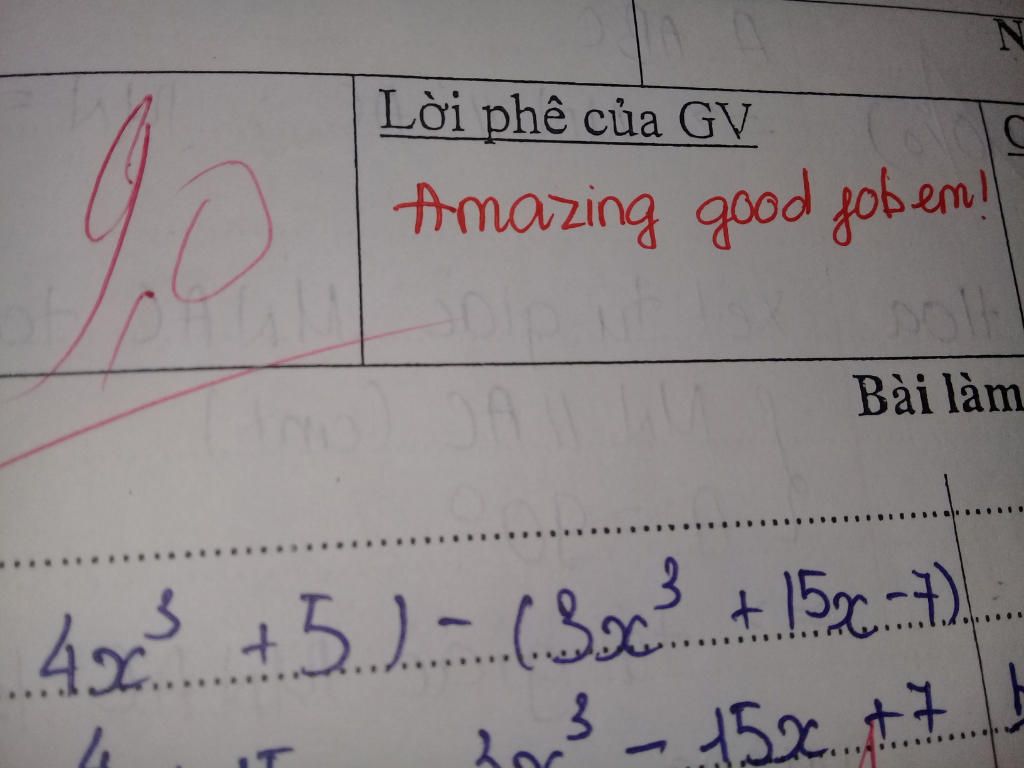 N
Lời phê của GV
9,0
Amazing good job em!
Bài làm
4x³ + 5) - (3x³ + 15x - 7)
3x³ - 15x + 7